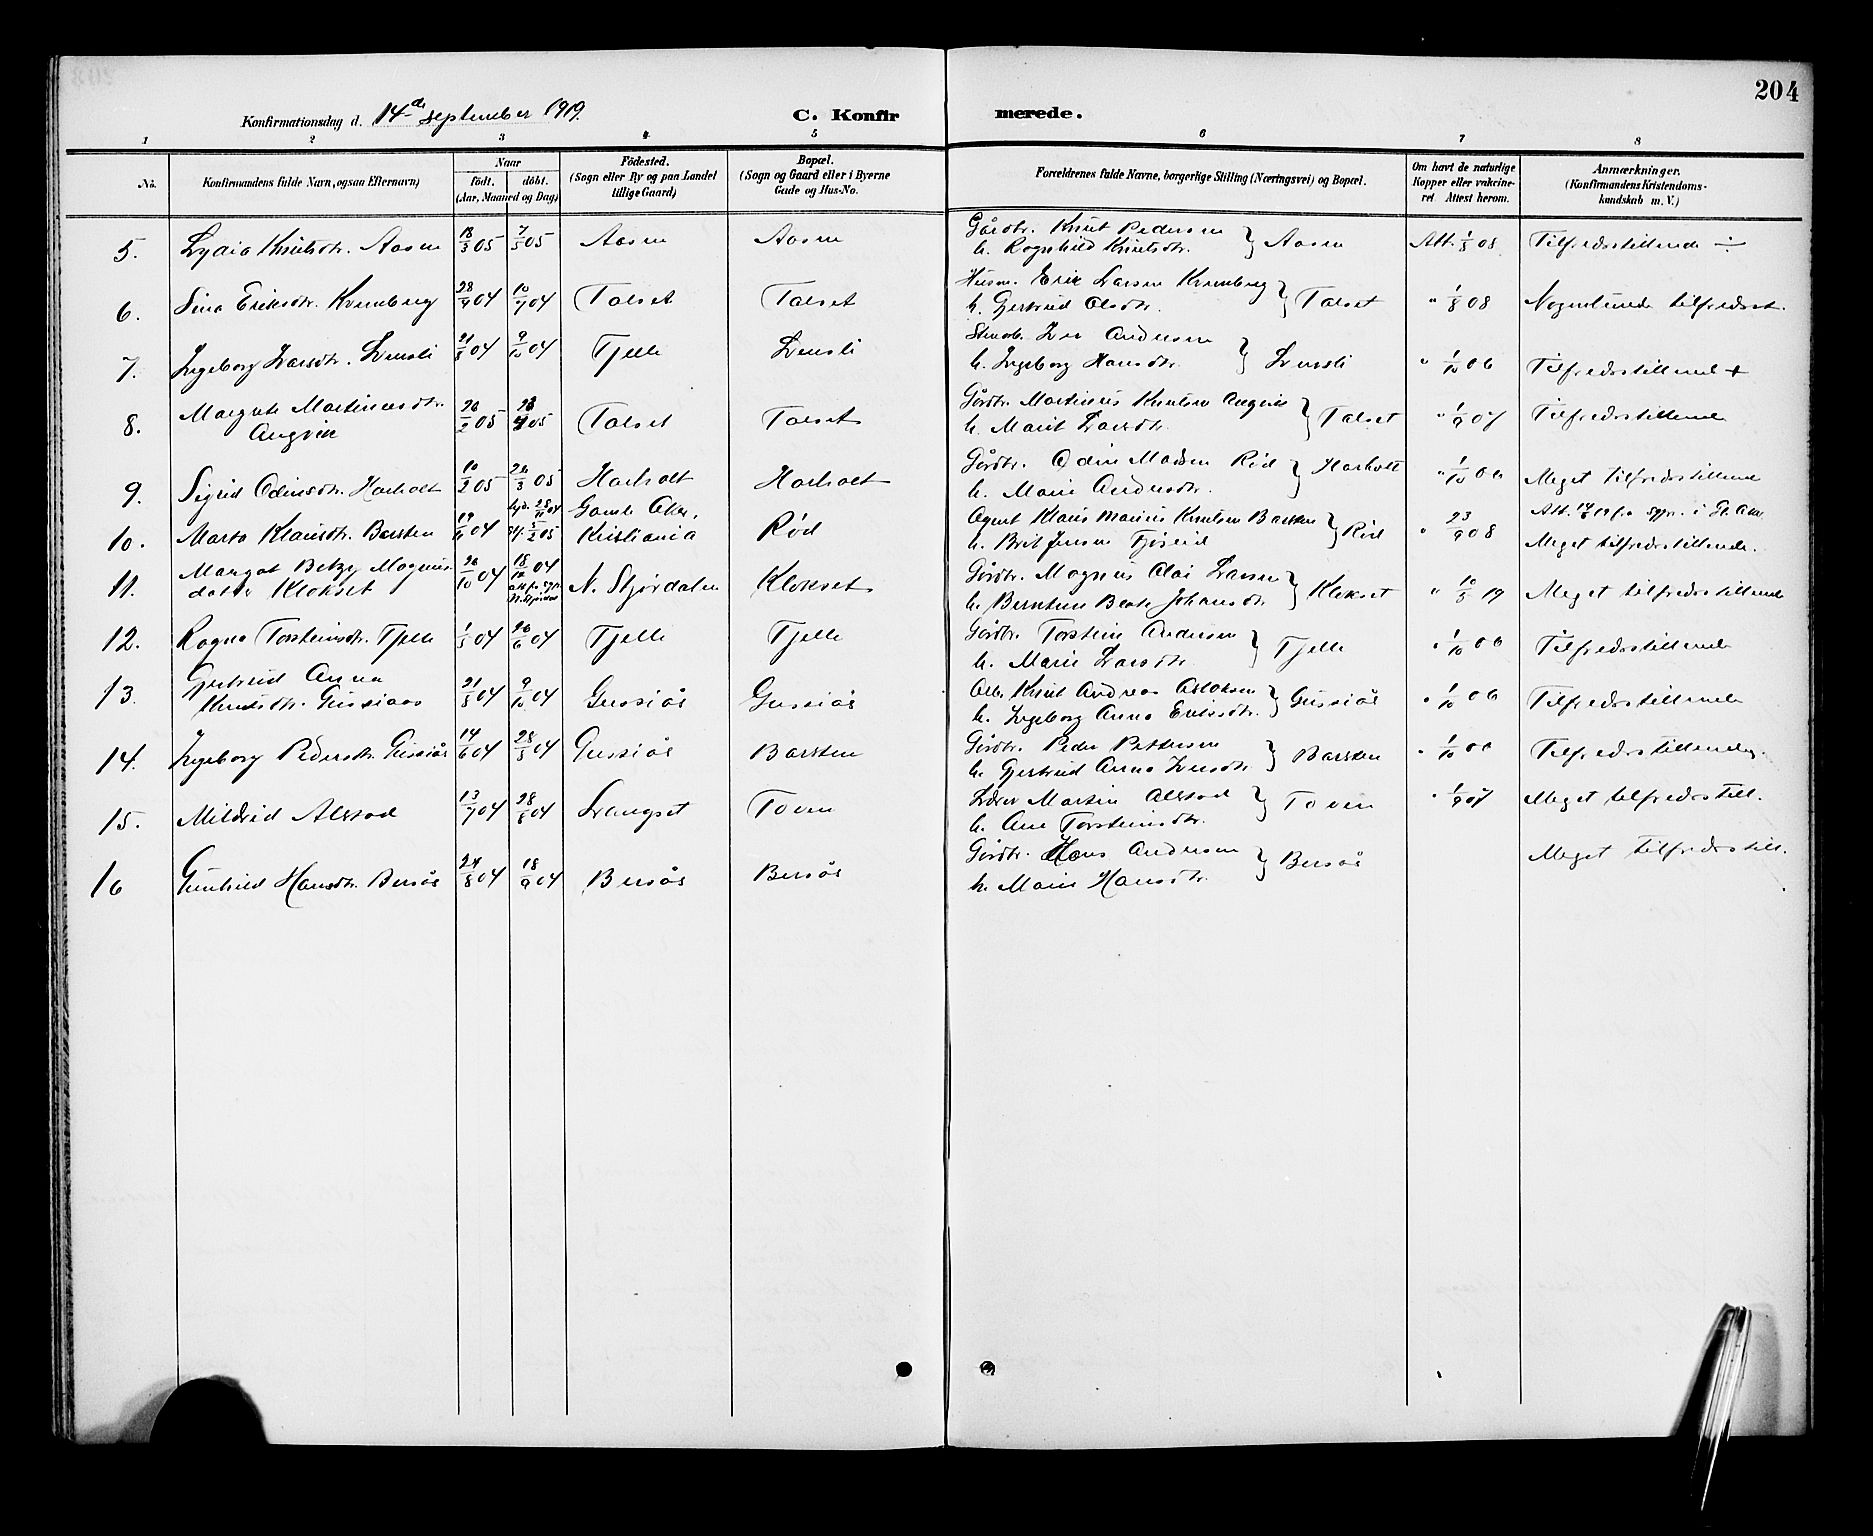 204
Konfirmationsdag d. 14de september 1919.
C. Konfirmerede.
1 2 3 4 5 6 7 8
No.
Konfirmandens fulde Navn, ogsaa Efternavn)
Naar
födt. döbt.
(Aar, Maaned og Dag)
Födested.
(Sogn eller By og paa Landet
tillige Gaard)
Bopæl.
(Sogn og Gaard eller i Byerne
Gade og Hus-No.
Forældrenes fulde Navne, borgerlige Stilling (Næringsvei) og Bopæl.
Om havt de naturlige
Kopper eller vakcine-
ret. Attest herom.
Anmærkninger.
(Konfirmandens Kristendoms-
kundskab m. V.)
5. Lydia Knutsdtr. Aasen 18/3 05 7/5 05 Aasen Aasen
Gårdbr. Knut Pedersen
h. Ragnhild Knutsdtr. } Aasen Att. 1/8 08 Tilfredsstillende ÷
6. Sina Eriksdtr. Kvernberg 28/9 04 Talset Talset
Husm. Erik Larsen Kvernberg
h. Gjertrud Olsdtr. } Talset " 1/8 08 Nogenlunde tilfredsst.
7. Ingeborg Larsdtr. 21/8 04 9/10 04 Tjelle
Andersen
h. Ingeborg Hansdtr. } " 1/10 06 Tilfredsstillende +
8. Margrete Martinusdtr.
Angvik 26/2 05 05 Talset Talset
Gårdbr. Martinus Knutsen Angvik
h. Marit Larsdtr. } Talset " 1/9 07 Tilfredsstillende
9. Sigrid Odinsdtr. Harholt 10/2 05 26/3 05 Harholt Harholt
Gårdbr. Odin Madsen Rød
h. Marie Andersdtr. } Harholt " 1/10 06 Meget tilfredsstillende
10. Marta Klausdtr. Barsten 19/6 04 5/2 05 Gamle Aker,
Kristiania Rød
Agent Klaus Marius Knutsen Barsten
h. Brit Jensen } Rød " 23/9 08 Meget tilfredsstillende.
11. Margot Betzy Magnus-
datter Klokset 26/10 04 18/12 04 N. Stjørdalen Klokset
Gårdbr. Magnus Olai Larsen
h. Berntine Beate Johansdtr } Klokset " 10/8 19 Meget tilfredsstillende
12. Ragna Torsteinsdtr. Tjelle 1/5 04 26/6 04 Tjelle Tjelle
Gårdbr. Torstein Andersen
h. Marie Larsdtr. } Tjelle " 1/10 06 Tilfredsstillende
13. Gjertrud Anna
Knutsdtr. Gussiaas 21/8 04 9/10 04 Gussiås Gussiås
Arb. Knut Andreas Aslaksen
h. Ingeborg Anna Eriksdtr. } Gussiås " 1/10 06 Tilfredsstillende
14. Ingeborg Pedersdtr. Gussiås 14/6 04 28/8 04 Gussiås Barsten
Gårdbr. Peder Pettersen
h. Gjertrud Anna Jensdtr } Barsten " 1/10 06 Tilfredsstillende.
15. Mildrid Alstad 13/7 04 28/8 04 Langset Toven
Lærer Martin Alstad
h. Ane Torsteinsdtr. } Toven " 1/9 07 Meget tilfredsstill.
16 Gunhild Hansdtr. Bersås 24/8 04 18/9 04 Bersås Bersås
Gårdbr. Hans Andersen
h. Marie Hansdtr. } Bersås Meget tilfredsstill.